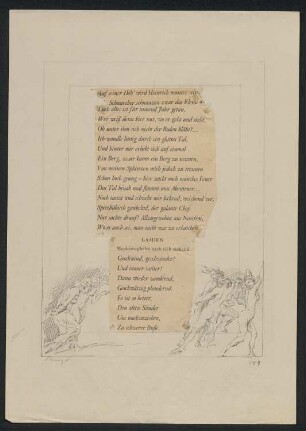 Auf seiner Höh' wird Heinrich
Schnarcher schnauzen zwar das
Doch alles ist für tausend Jahr getan.
Wer weiß denn hier nur, wo er geht und steht,
Ob unter ihm sich nicht der Boden bläht?..
Ich wandle lustig durch ein glattes Tal,
Und hinter mir erhebt sich auf einmal
Ein Berg, zwar kaum ein Berg zu nennen,
Von meinen Sphinxen mich jedoch zu trennen
Schon hoch genug — hier zuckt noch manches Feuer
Das Tal hinab und flammt ums Abenteuer...
Noch tanzt und schwebt mir lockend, weichend vor,
Spitzbübisch gaukelnd, der galante Chor.
Nur sachte drauf! Allzugewohnt ans Naschen,
Wo es auch sei, man sucht was zu erhaschen.
LAMIEN
Mephistopheles nach sich ziehend.
Geschwind, geschwinder!
Und immer weiter!
Dann wieder zaudernd,
Geschwätzig plaudernd.
Es ist so heiter,
Den alten Sünder
Uns nachzuziehen,
Zu schwerer Buße.